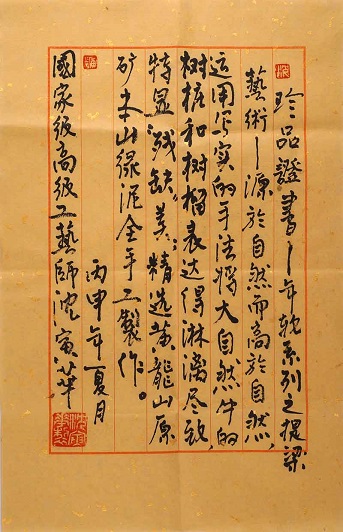 珍品證書—年轮系列之提梁
藝術—源於自然而高於自然，
运用写实的手法將大自然中的
树桩和树榴表达得淋漓尽致，
特显“残缺”美；精选黄龍山原
矿本山绿泥全手工製作。
丙申年夏月
國家级高级工藝師沈寅华